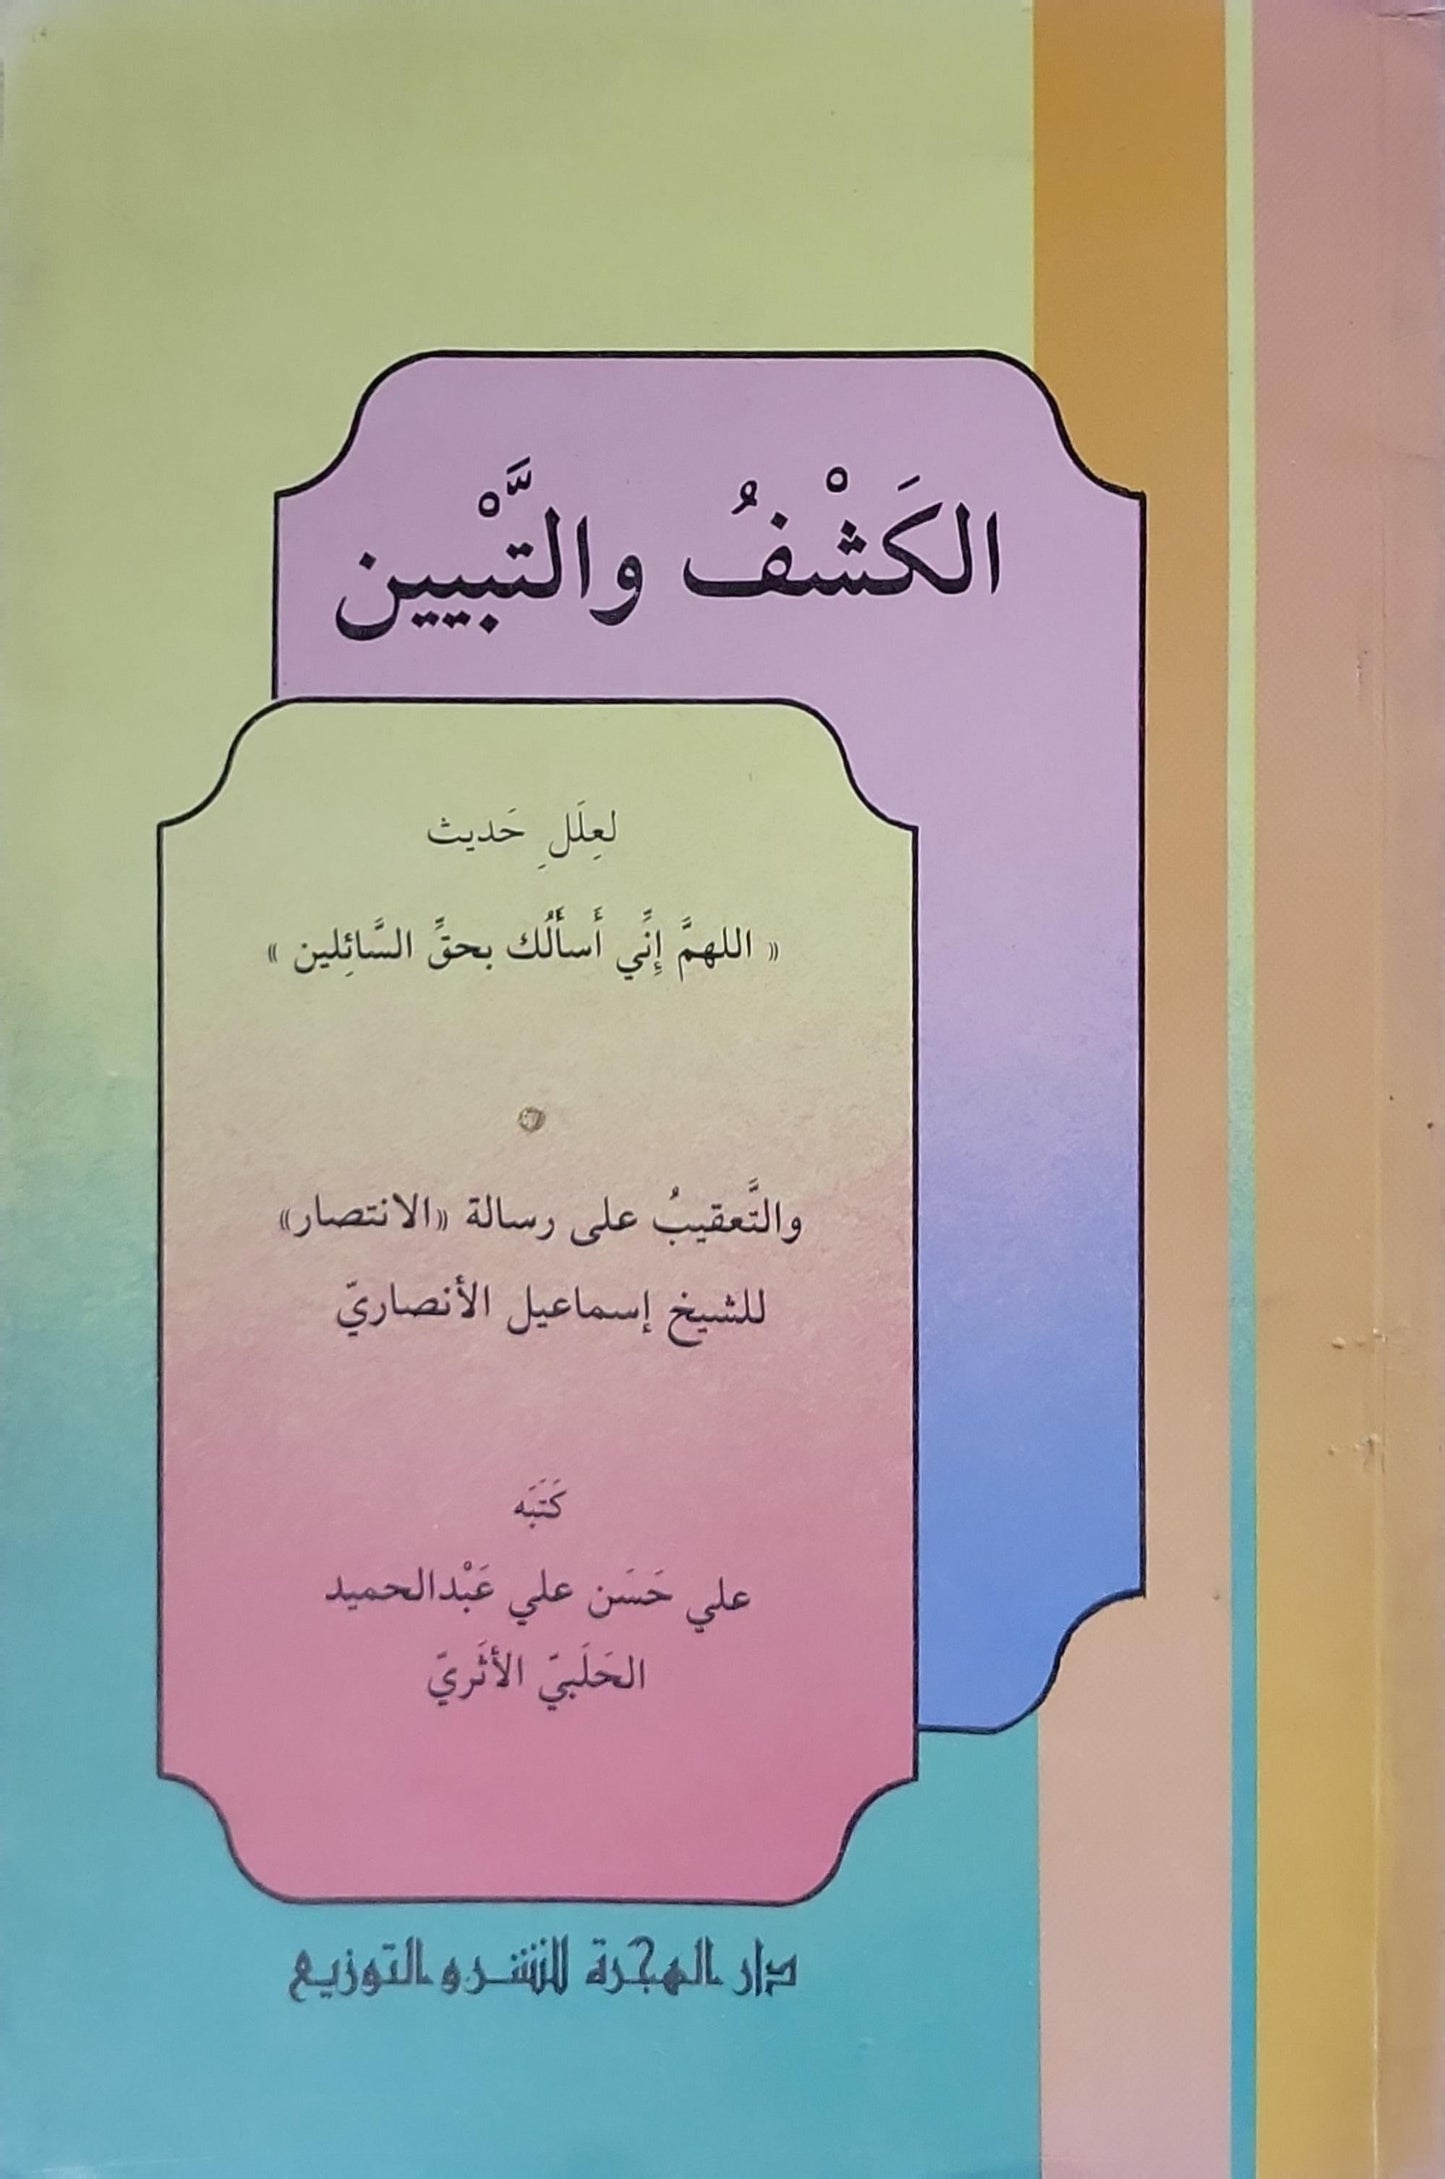 الكَشْفُ والتَّبْيين
لعِلَلِ حَديث
« اللهمَّ إنِّي أَسأَلُك بحقِّ السَّائِلين »
والتَّعقيبُ على رسالة «الانتصار»
للشيخ إسماعيل الأنصاريّ
كَتَبَه
علي حَسَن علي عَبْدالحميد
الحَلَبيّ الأثَريّ
دار الهجرة للنشر و التوزيع